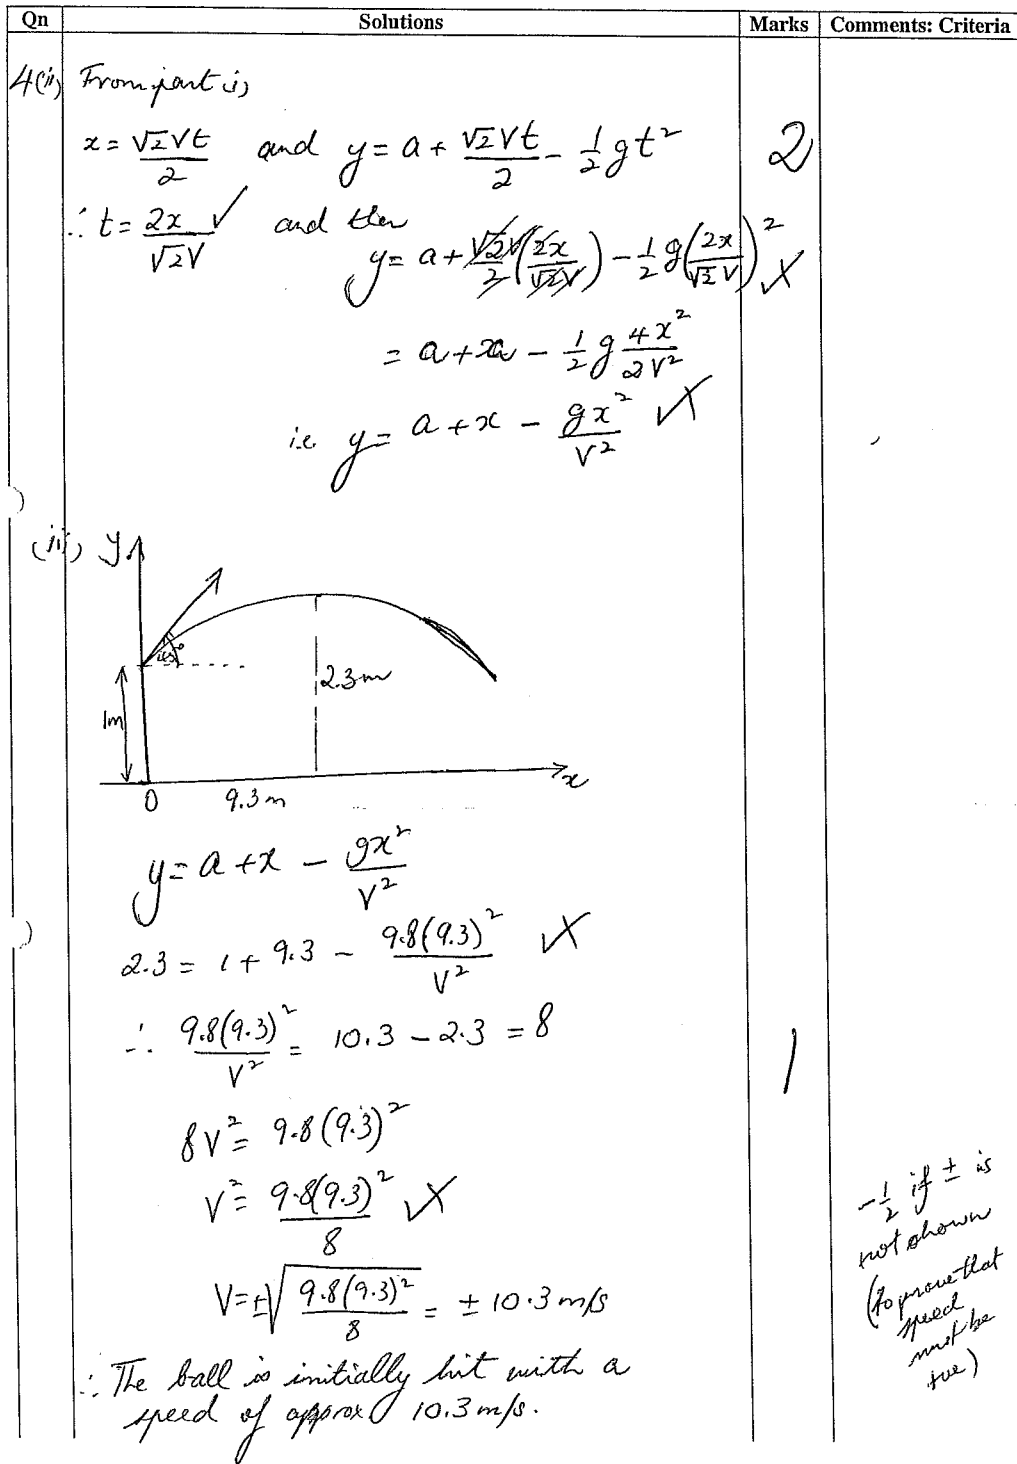 Qn Solutions Marks Comments: Criteria
4(ii) From part i)
x = √2Vt/2 and y = a + √2Vt/2 - 1/2 gt² 2
∴ t = 2x/√2V ✓ and then
y = a + √2V/2 (2x/√2V) - 1/2 g(2x/√2V)²
= a + x - 1/2 g 4x²/2V²
i.e. y = a + x - gx²/V²
(iii) y
45°
2.3m
1m
0 9.3m x
y = a + x - gx²/V²
2.3 = 1 + 9.3 - 9.8(9.3)²/V²
∴ 9.8(9.3)²/V² = 10.3 - 2.3 = 8
1
8V² = 9.8(9.3)²
V² = 9.8(9.3)²/8
V = ±√(9.8(9.3)²/8) = ±10.3 m/s
∴ The ball is initially hit with a
speed of approx 10.3 m/s.
-1/2 if ± is
not shown
(to prove that
speed
must be
+ve)